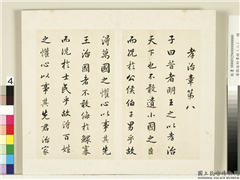 孝治章第八
子曰昔者明王之以孝治
天下也不敢遺小國之臣
而況於公侯伯子男乎故
得萬國之懽心以事其先
王治國者不敢侮於鰥寡
而況於士民乎故得百姓
之懽心以事其先君治家
4